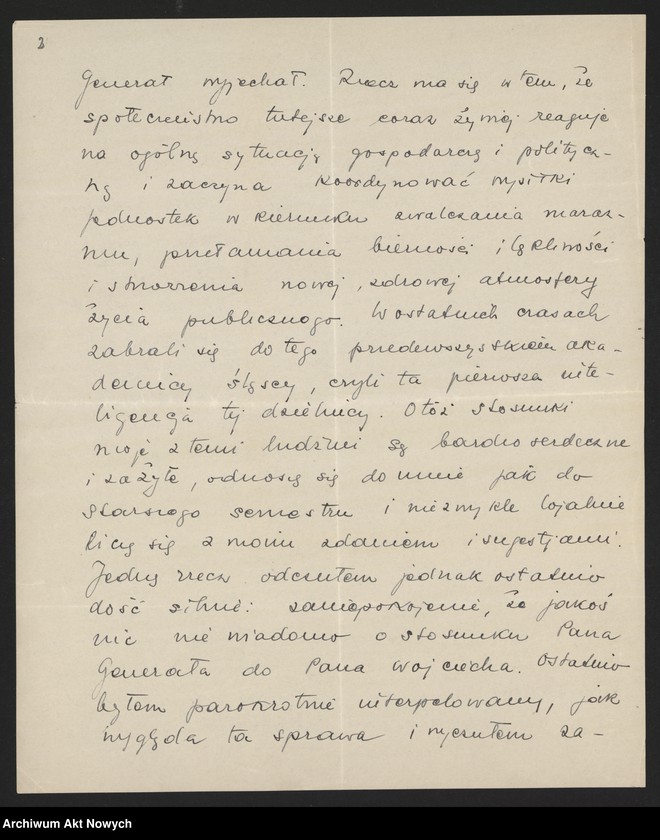 2
Generał wyjechał. Rzecz ma się w tem, że
społeczeństwo tutejsze coraz żywiej reaguje
na ogólną sytuację gospodarczą i politycz-
ną i zaczyna koordynować wysiłki
jednostek w kierunku zwalczania maraz-
mu, przełamania bierności i lękliwości
i stworzenia nowej, zdrowej atmosfery
życia publicznego. W ostatnich czasach
zabrali się do tego przedewszystkiem aka-
demicy śląscy, czyli ta pierwsza inte-
ligencja tej dzielnicy. Otóż stosunki
moje z temi ludźmi są bardzo serdeczne
i zażyłe, odnoszą się do mnie jak do
starszego semestru i niezwykle lojalnie
liczą się z moim zdaniem i sugestjami.
Jedną rzecz odczułem jednak ostatnio
dość silnie: zaniepokojenie, że jakoś
nic nie wiadomo o stosunku Pana
Generała do Pana Wojciecha. Ostatnio
byłem parokrotnie interpelowany, jak
wygląda ta sprawa i wyczułem za-
Archiwum Akt Nowych